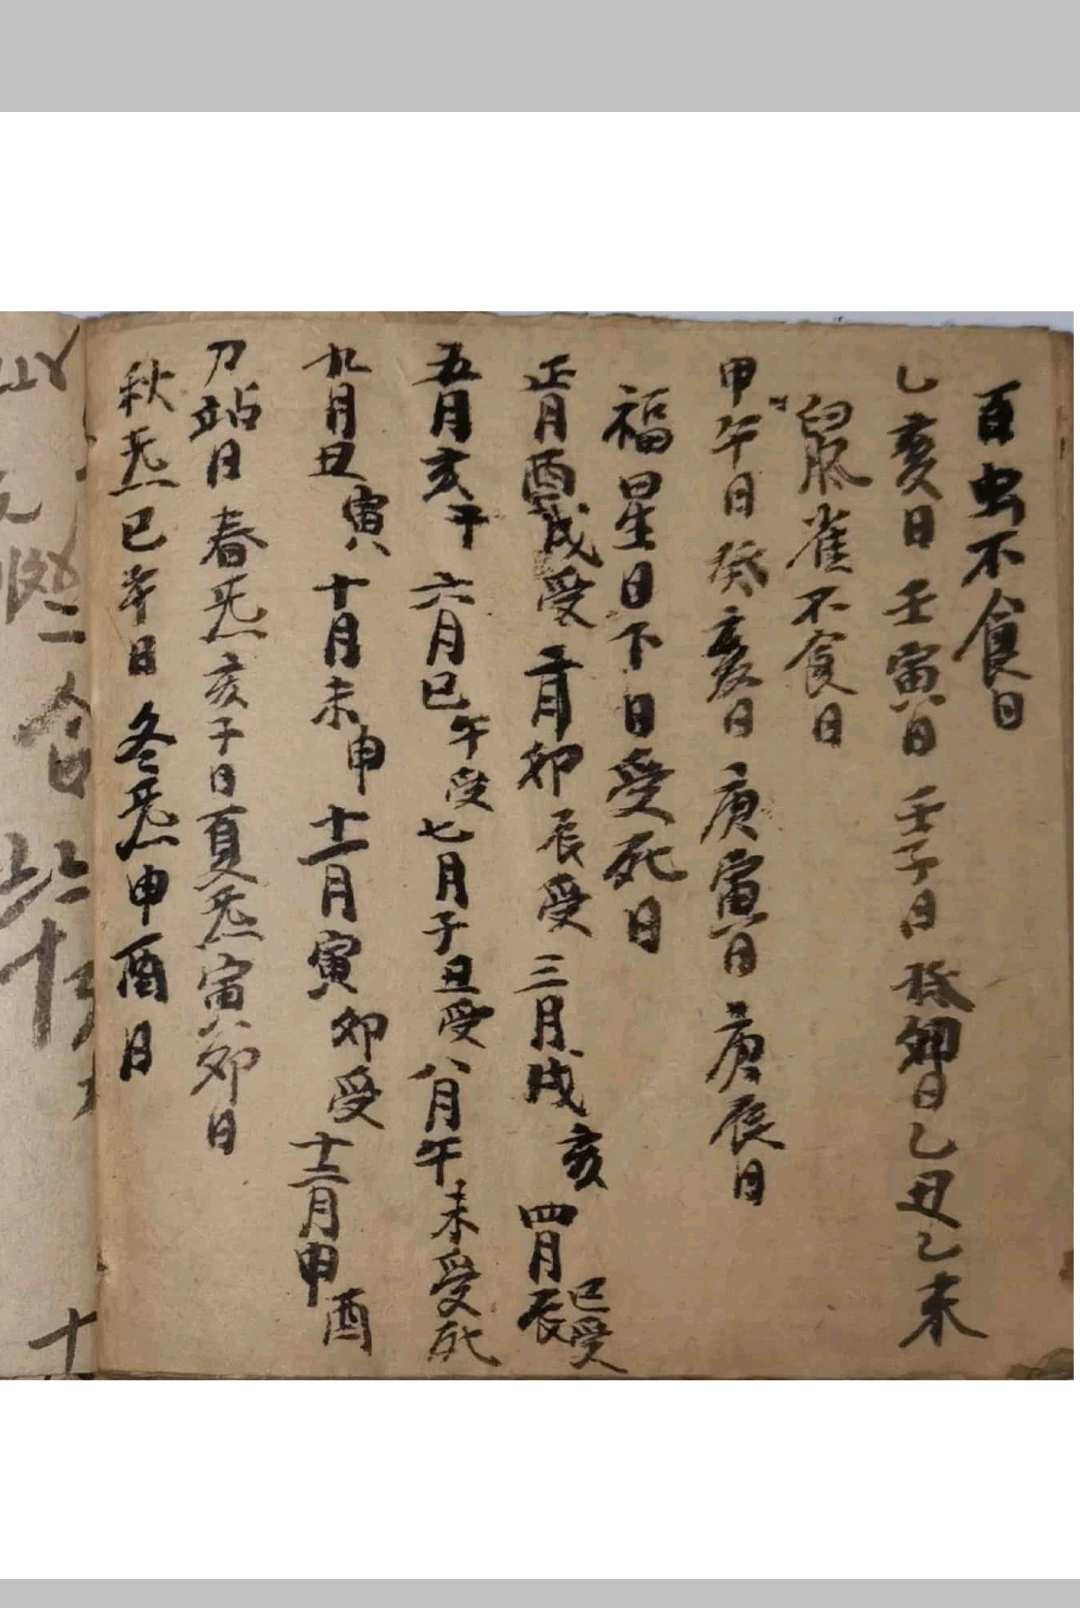 百虫不食日
乙亥日壬寅日壬子日癸卯日乙丑乙未
鼠雀不食日
甲午日癸亥日庚寅日庚辰日
福星日下日受死日
正月酉戌受二月卯辰受三月戌亥四月辰巳受
五月亥子六月巳午受七月子丑受八月午未受死
九月丑寅十月未申十一月寅卯受十二月申酉
刀站日春炁亥子日夏炁寅卯日
秋炁巳午日冬炁申酉日